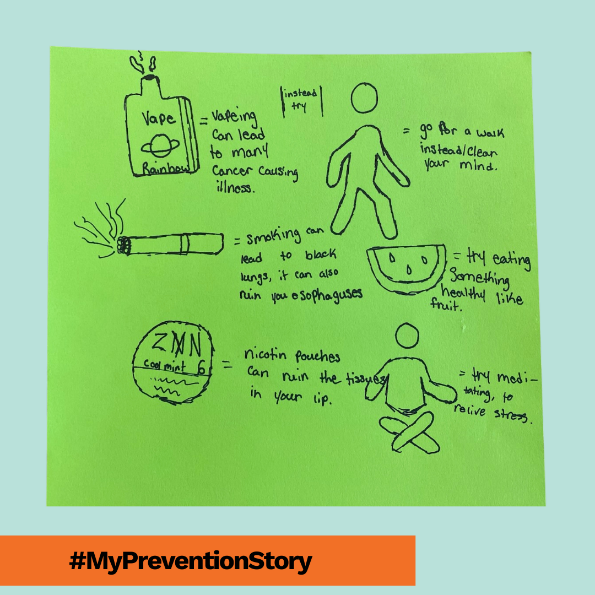 Vape
Rainbow
= vapeing
can lead
to many
cancer causing
illness.
instead
try
= go for a walk
instead/clear
your mind.
= smoking can
lead to black
lungs, it can also
ruin you esophaguses
= try eating
something
healthy like
fruit.
ZNN
cool mint 6
= nicotin pouches
can ruin the tissues
in your lip.
= try medi-
tating, to
relive stress.
#MyPreventionStory